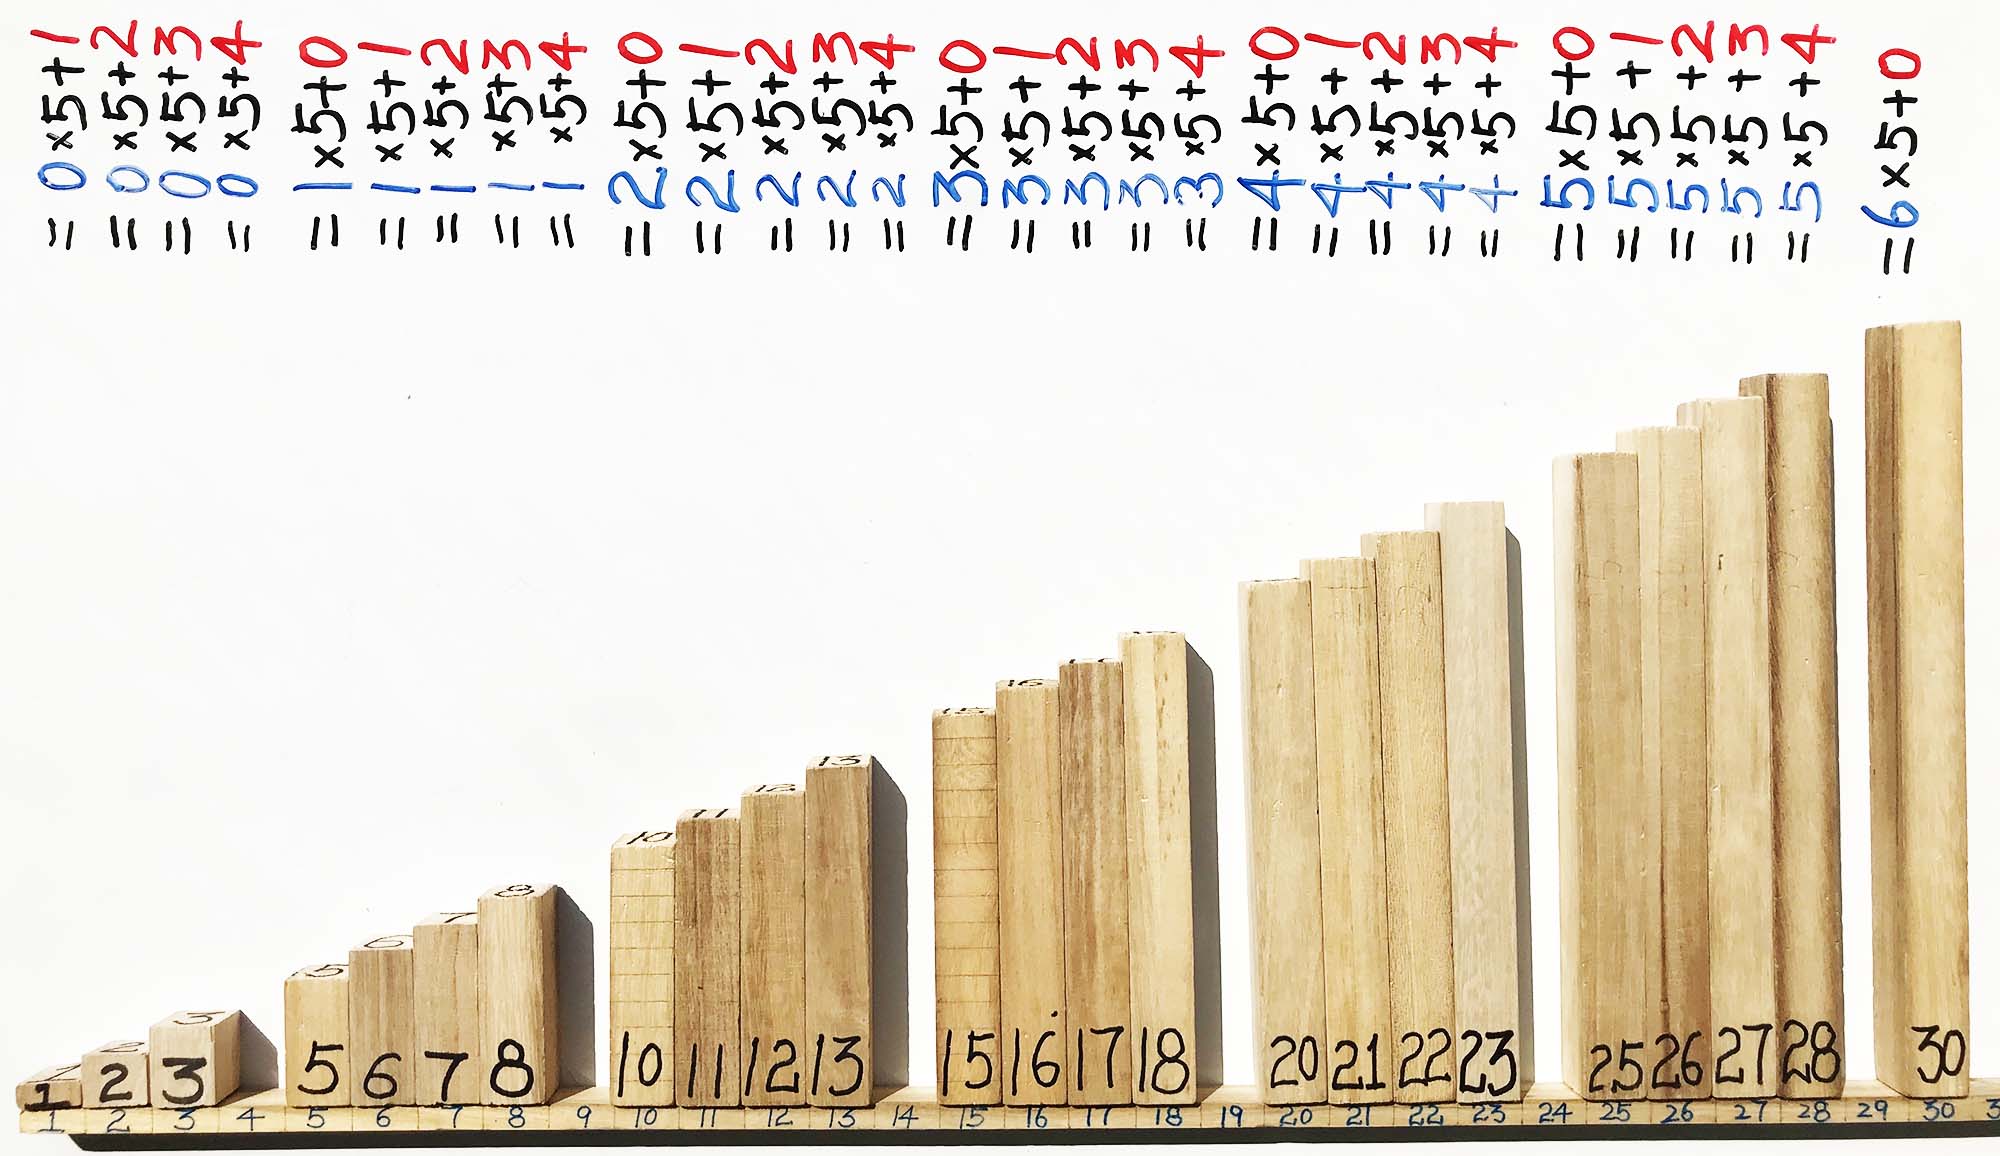 =0×5+1
=0×5+2
=0×5+3
=0×5+4
=1×5+0
=1×5+1
=1×5+2
=1×5+3
=1×5+4
=2×5+0
=2×5+1
=2×5+2
=2×5+3
=2×5+4
=3×5+0
=3×5+1
=3×5+2
=3×5+3
=3×5+4
=4×5+0
=4×5+1
=4×5+2
=4×5+3
=4×5+4
=5×5+0
=5×5+1
=5×5+2
=5×5+3
=5×5+4
=6×5+0
1 2 3 5 6 7 8 10 11 12 13 15 16
1 2 3 5 6 7 8 10 11 12 13 15 16 17 18 20 21 22 23 25 26 27 28 30
1 2 3 4 5 6 7 8 9 10 11 12 13 14 15 16 17 18 19 20 21 22 23 24 25 26 27 28 29 30